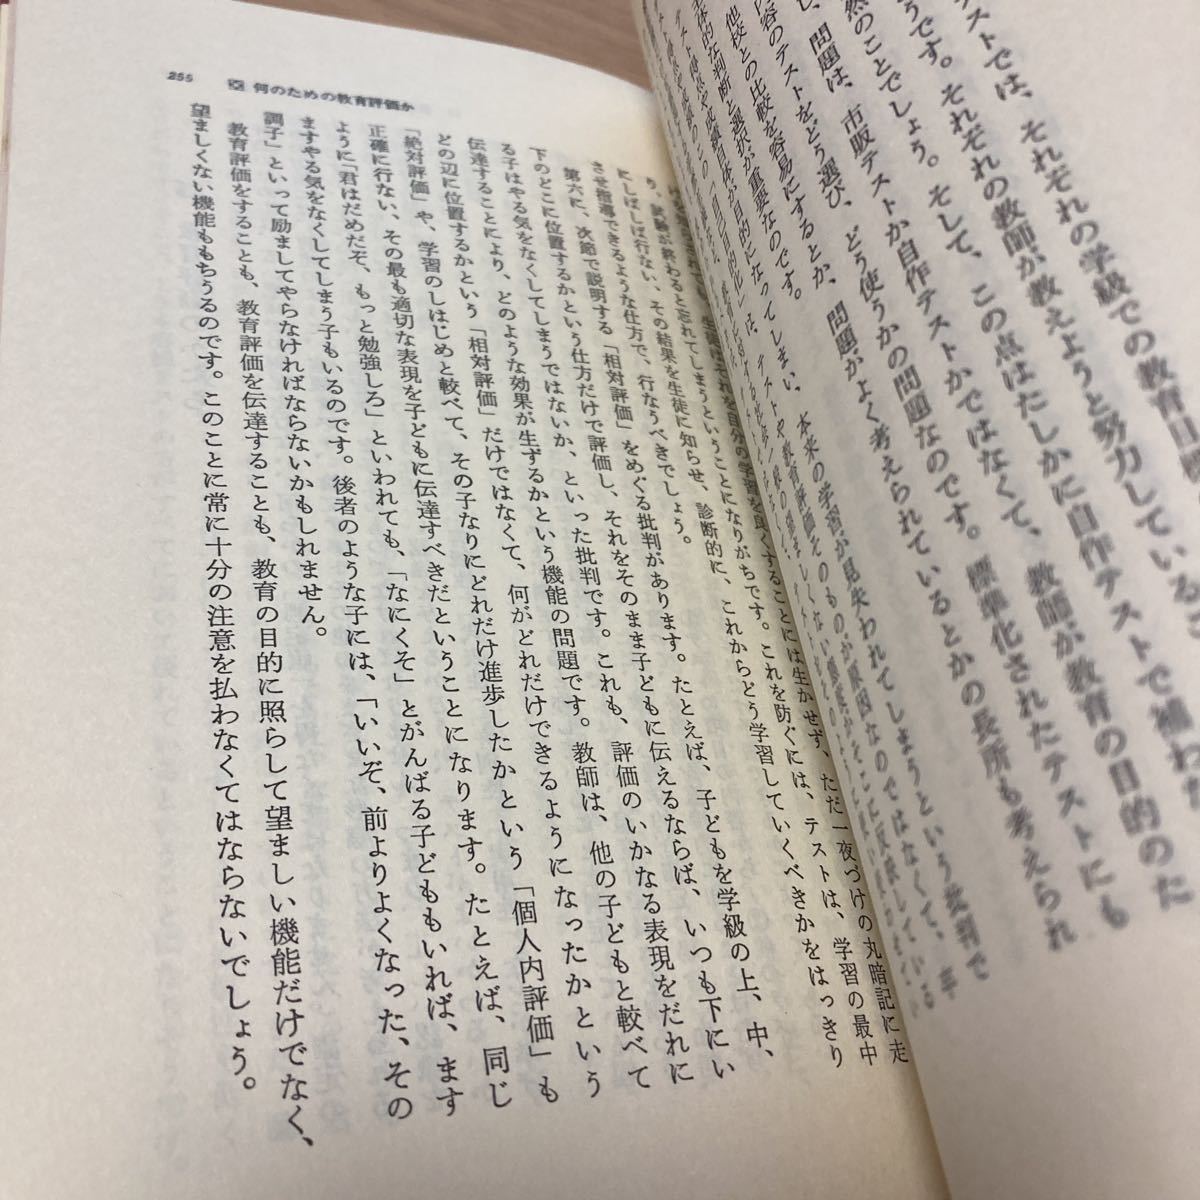 テストでは、それぞれの学級での教育目標
うです。それぞれの教師が教えようと努力しているこ
然のことでしょう。そして、この点はたしかに自作テストで補わな
し、問題は、市販テストか自作テストかではなくて、教師が教育の目的のた
内容のテストをどう選び、どう使うかの問題なのです。標準化されたテストにも
他校との比較を容易にするとか、問題がよく考えられているとかの長所も考えられ
主体的な判断と選択が重要なのです。
テスト得点や成績自体が目的になってしまい、本来の学習が見失われてしまうという批判で
生徒はそれを自分の学習を良くすることには生かせず、ただ一夜づけの丸暗記に走
り、試験が終わると忘れてしまうということになりがちです。これを防ぐには、テストは、学習の最中
にしばしば行ない、その結果を生徒に知らせ、診断的に、これからどう学習していくべきかをはっきり
させ指導できるような仕方で、行なうべきでしょう。
第六に、次節で説明する「相対評価」をめぐる批判があります。たとえば、子どもを学級の上、中、
下のどこに位置するかという仕方だけで評価し、それをそのまま子どもに伝えるならば、いつも下にい
る子はやる気をなくしてしまうではないか、といった批判です。これも、評価のいかなる表現をだれに
伝達することにより、どのような効果が生ずるかという機能の問題です。教師は、他の子どもと較べて
どの辺に位置するかという「相対評価」だけではなくて、何がどれだけできるようになったかという
「絶対評価」や、学習のしはじめと較べて、その子なりにどれだけ進歩したかという「個人内評価」も
正確に行ない、その最も適切な表現を子どもに伝達すべきだということになります。たとえば、同じ
ように「君はだめだぞ、もっと勉強しろ」といわれても、「なにくそ」とがんばる子どももいれば、ます
ますやる気をなくしてしまう子もいるのです。後者のような子には、「いいぞ、前よりよくなった、その
調子」といって励ましてやらなければならないかもしれません。
教育評価をすることも、教育評価を伝達することも、教育の目的に照らして望ましい機能だけでなく、
望ましくない機能ももちうるのです。このことに常に十分の注意を払わなくてはならないでしょう。
255 何のための教育評価か